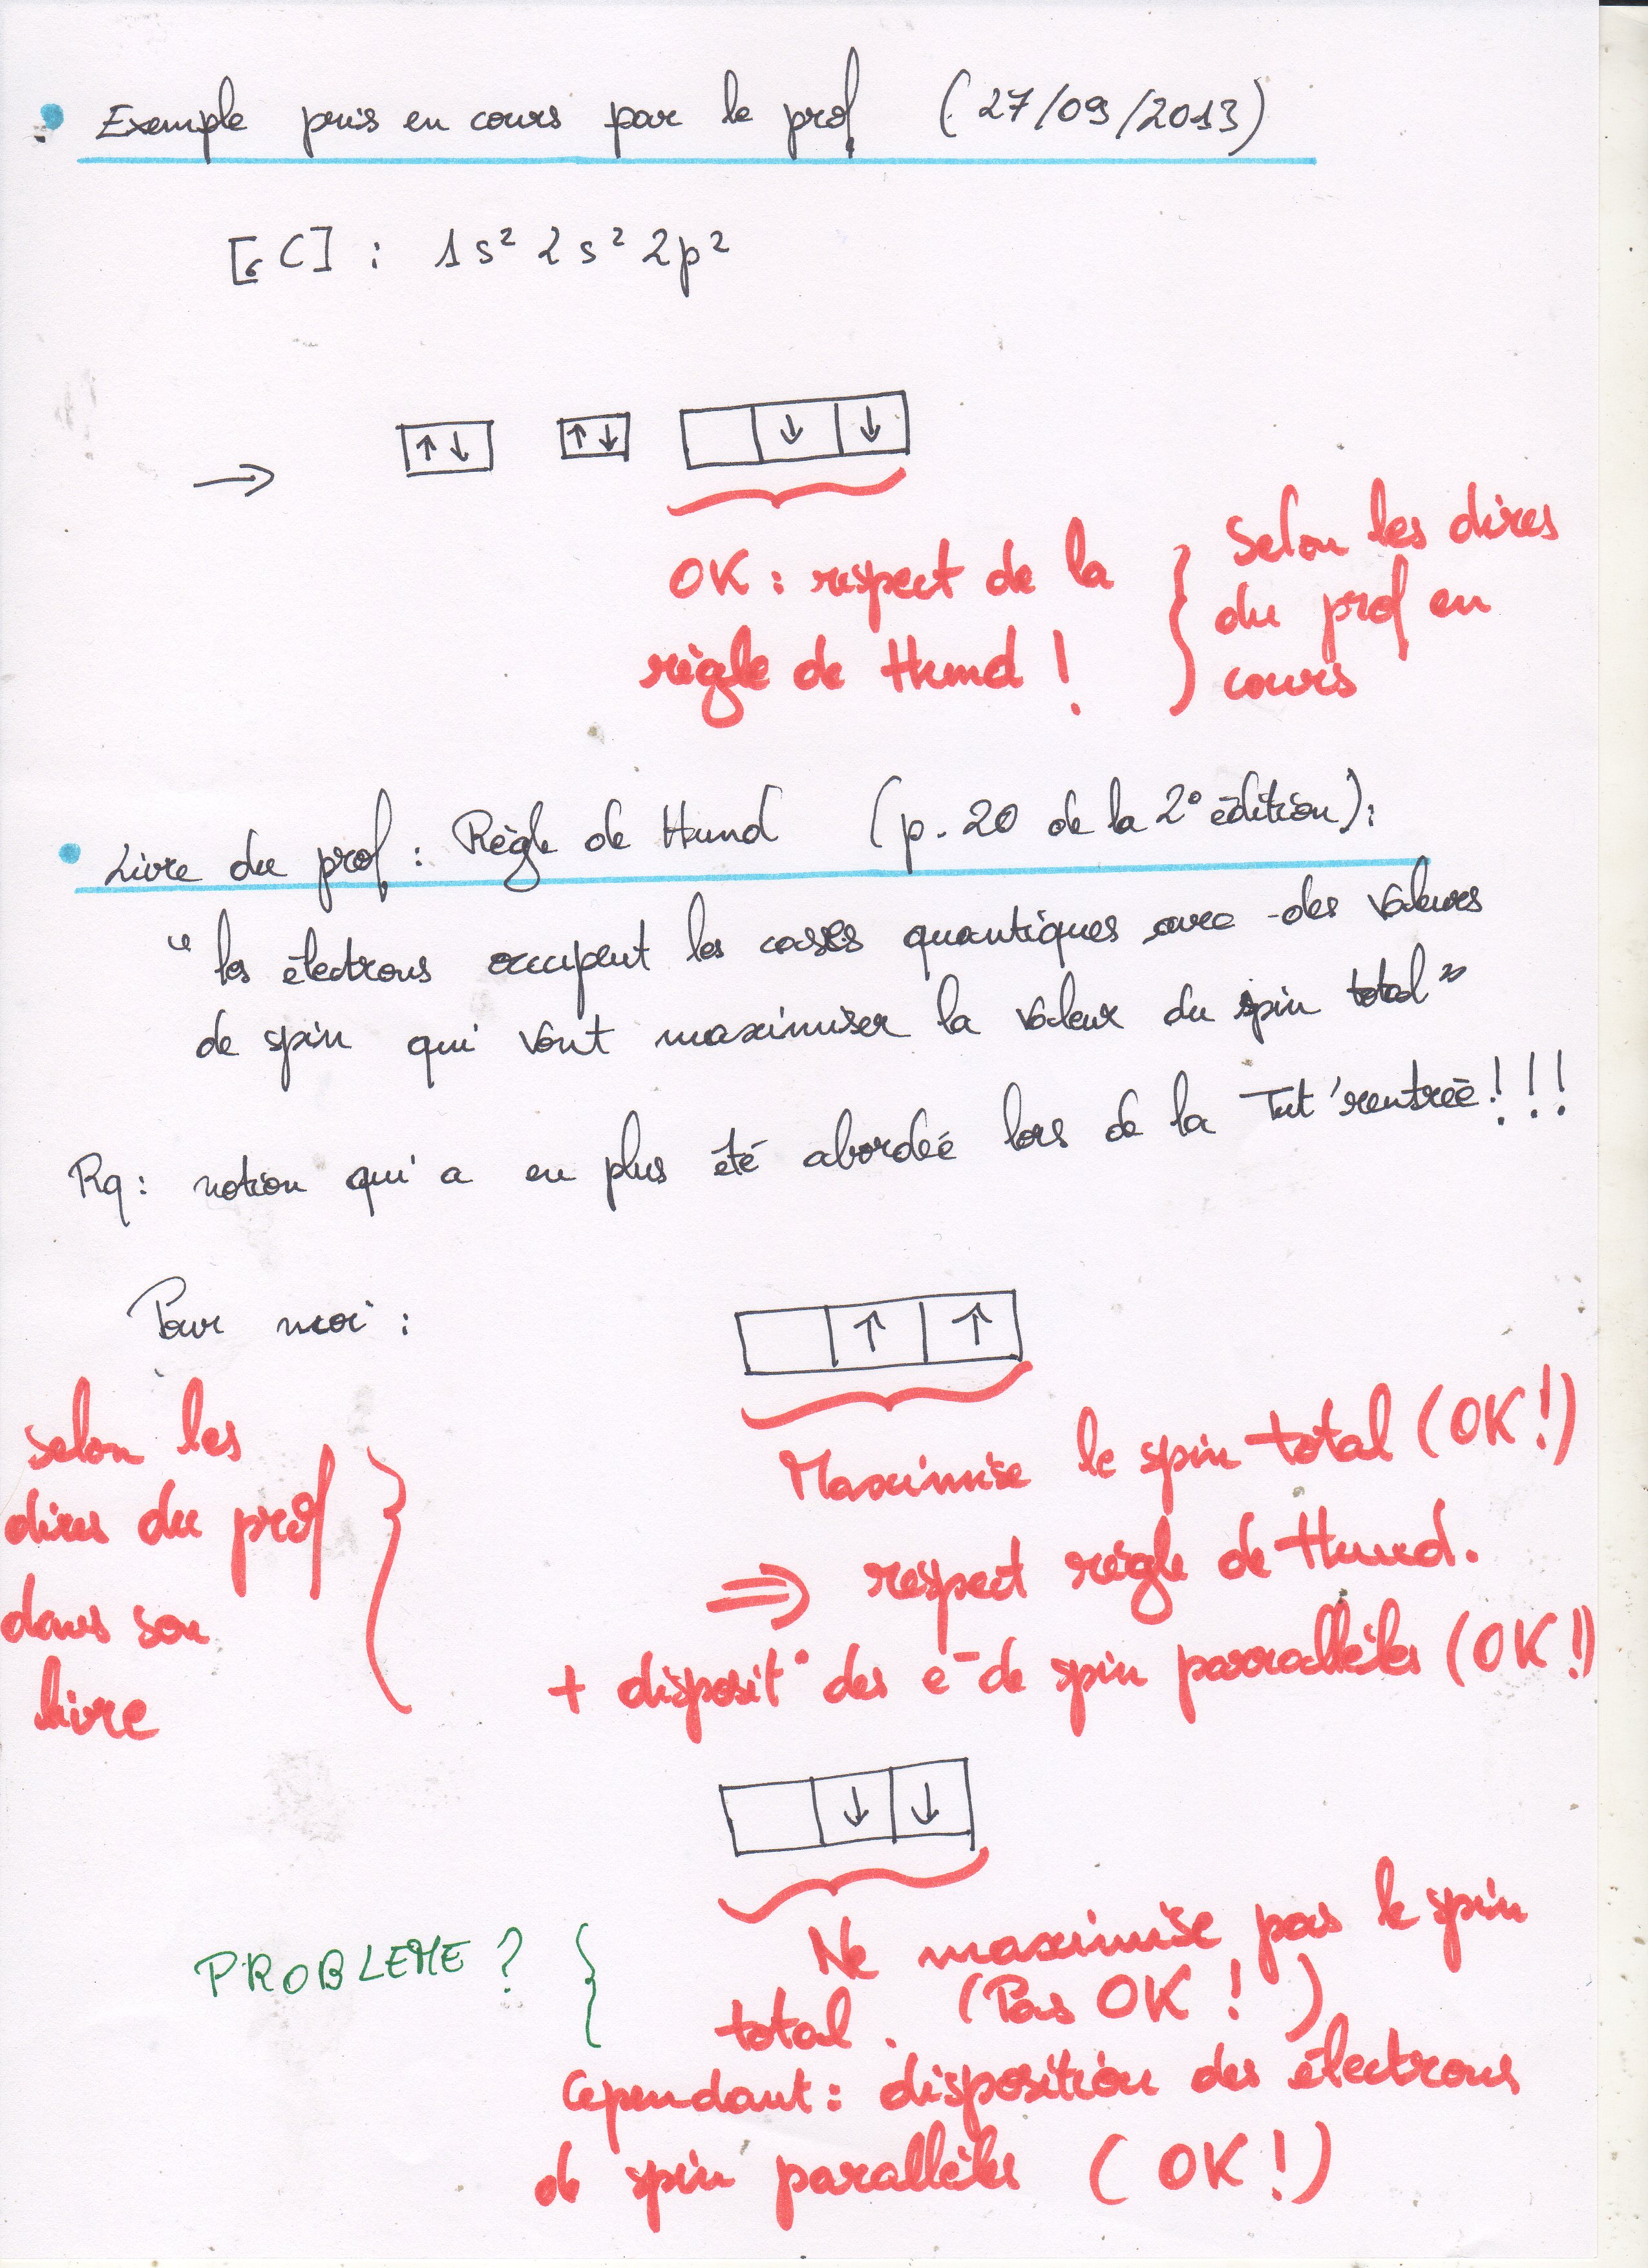 • Exemple pris en cours par le prof (27/09/2013)
[₆C] : 1s² 2s² 2p²
→ ↑↓ ↑↓ ↓ ↓
OK : respect de la
règle de Hund !
Selon les dires
du prof en
cours
• Livre du prof : Règle de Hund (p. 20 de la 2° édition) :
"les électrons occupent les cases quantiques avec des valeurs
de spin qui vont maximiser la valeur du spin total"
Rq : notion qui a en plus été abordée lors de la Tut'rentrée!!!
Pour moi :
↑ ↑
selon les
dires du prof
dans son
livre
Maximise le spin total (OK!)
⇒ respect règle de Hund.
+ disposit° des e⁻ de spin parrallèles (OK!)
↓ ↓
PROBLEME ?
Ne maximise pas le spin
total. (Pas OK ! )
Cependant : disposition des électrons
de spin parallèles ( OK!)